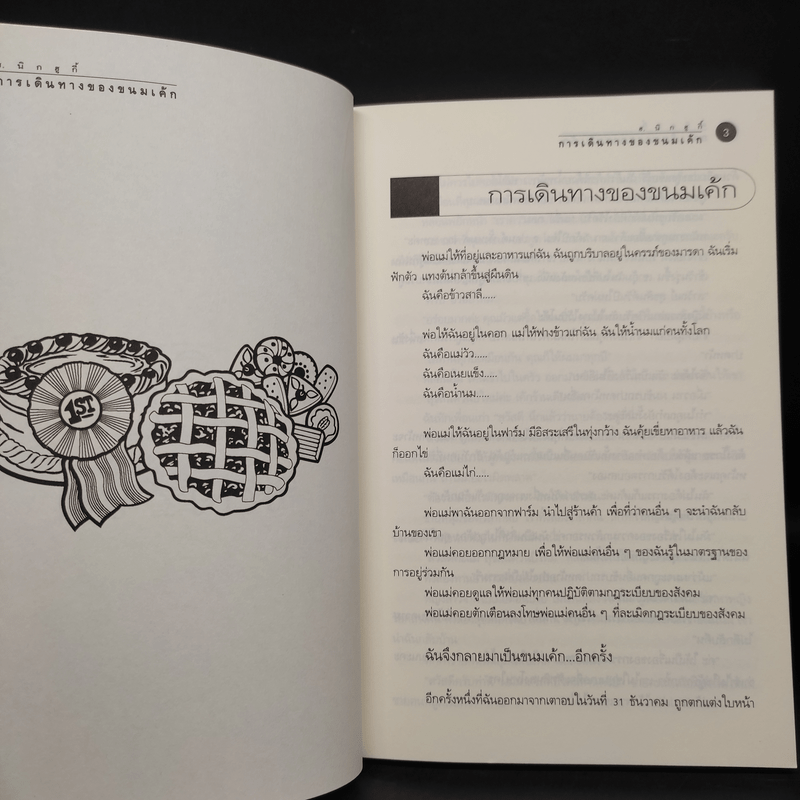 นิกฮูกี้
การเดินทางของขนมเค้ก
1ST
ส. นิกฮูกี้
3
การเดินทางของขนมเค้ก
การเดินทางของขนมเค้ก
พ่อแม่ให้ที่อยู่และอาหารแก่ฉัน ฉันถูกบริบาลอยู่ในครรภ์ของมารดา ฉันเริ่ม
ฟักตัว แทงต้นกล้าขึ้นสู่ผืนดิน
ฉันคือข้าวสาลี.....
พ่อให้ฉันอยู่ในคอก แม่ให้ฟางข้าวแก่ฉัน ฉันให้น้ำนมแก่คนทั้งโลก
ฉันคือแม่วัว.....
ฉันคือเนยแข็ง.....
ฉันคือน้ำนม.....
พ่อแม่ให้ฉันอยู่ในฟาร์ม มีอิสระเสรีในทุ่งกว้าง ฉันคุ้ยเขี่ยหาอาหาร แล้วฉัน
ก็ออกไข่
ฉันคือแม่ไก่.....
พ่อแม่พาฉันออกจากฟาร์ม นำไปสู่ร้านค้า เพื่อที่ว่าคนอื่น ๆ จะนำฉันกลับ
บ้านของเขา
พ่อแม่คอยออกกฎหมาย เพื่อให้พ่อแม่คนอื่น ๆ ของฉันรู้ในมาตรฐานของ
การอยู่ร่วมกัน
พ่อแม่คอยดูแลให้พ่อแม่ทุกคนปฏิบัติตามกฎระเบียบของสังคม
พ่อแม่คอยตักเตือนลงโทษพ่อแม่คนอื่น ๆ ที่ละเมิดกฎระเบียบของสังคม
ฉันจึงกลายมาเป็นขนมเค้ก...อีกครั้ง
อีกครั้งหนึ่งที่ฉันออกมาจากเตาอบในวันที่ 31 ธันวาคม ถูกตกแต่งใบหน้า